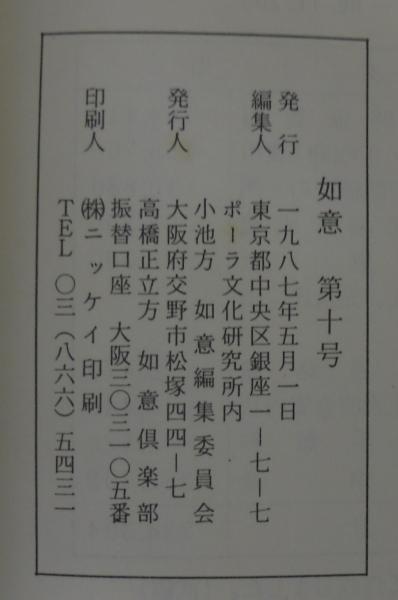 如意　第十号
発行　一九八七年五月一日
編集人　東京都中央区銀座一ー七ー七
ポーラ文化研究所内
小池方　如意編集委員会
発行人　大阪府交野市松塚四四ー七
高橋正立方　如意倶楽部
振替口座　大阪三〇三一〇五番
印刷人　㈱ニッケイ印刷
TEL 〇三(八六六)五四三一